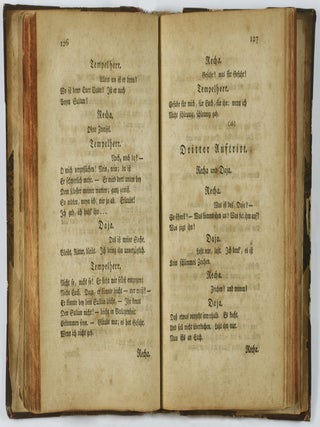 126
Tempelherr.
Allein wo ist er denn?
Wo ist denn Euer Vater? Ist er noch
Beym Sultan?
Recha.
Ohne Zweifel.
Tempelherr.
Noch, noch da? —
O mich vergeßlichen! Nein, nein; da ist
Er schwerlich mehr. — Er wird dort unten bey
Dem Kloster meiner warten; ganz gewiß.
So redten, mein ich, wir es ab. Erlaubt!
Ich geh, ich hohl' ihn...
Daja.
Das ist meine Sache.
Bleibt, Ritter, bleibt. Ich bring ihn unverzüglich.
Tempelherr.
Nicht so, nicht so! Er sieht mir selbst entgegen;
Nicht Euch. Dazu, er könnte leicht... wer weiß?...
Er könnte bey dem Sultan leicht,... Ihr kennt
Den Sultan nicht!... leicht in Verlegenheit
Gekommen seyn. — Glaubt mir; es hat Gefahr,
Wenn ich nicht geh.
Recha.
127
Recha.
Gefahr? was für Gefahr?
Tempelherr.
Gefahr für mich, für Euch, für ihn: wenn ich
Nicht schleunig, schleunig geh.
(ab)
Dritter Auftritt.
Recha und Daja.
Recha.
Was ist das, Daja? —
So schnell? — Was kömmt ihm an? Was fiel ihm auf?
Was jagt ihn?
Daja.
Laßt nur, laßt. Ich denk', es ist
Kein schlimmes Zeichen.
Recha.
Zeichen? und wovon?
Daja.
Daß etwas vorgeht innerhalb. Es kocht,
Und soll nicht überkochen. Laßt ihn nur.
Nun ist's an Euch.
Recha.